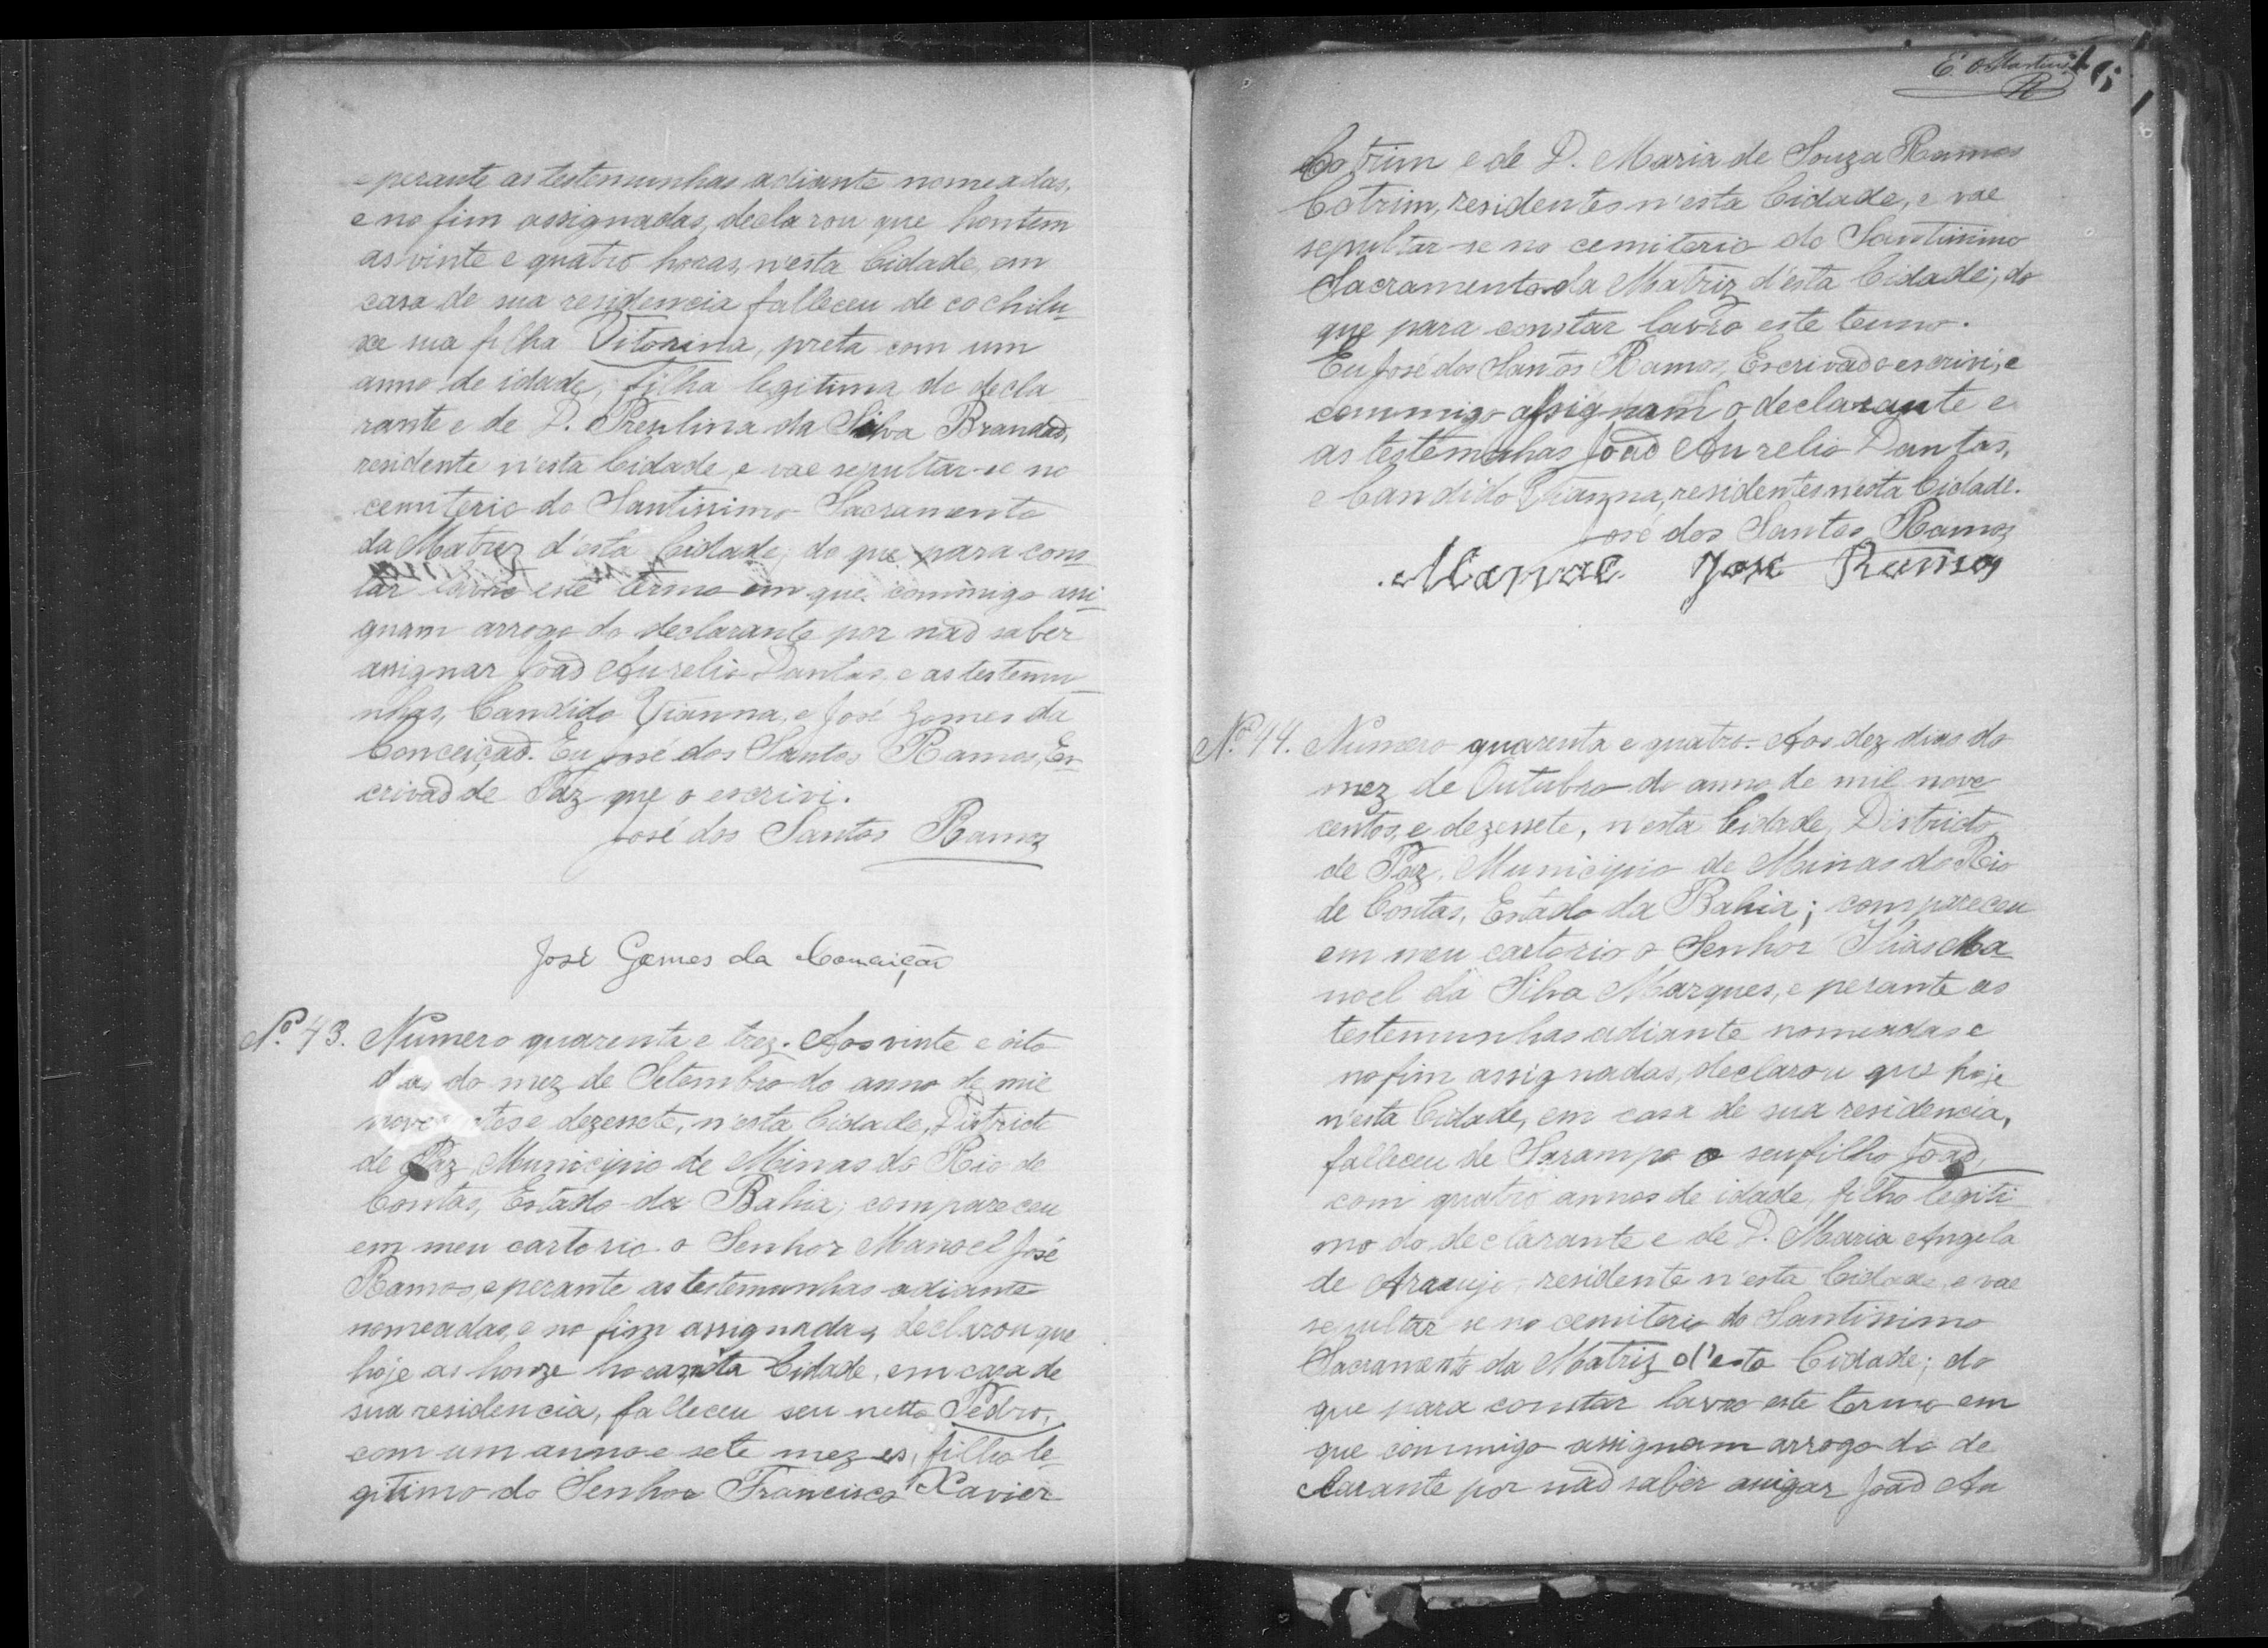 e perante as testemunhas adiante nomeadas,
e no fim assignadas, declarou que hontem
as vinte e quatro horas, n'esta Cidade, em
casa de sua residencia falleceu de cochilu-
xe sua filha Vitorina, preta com um
anno de idade, filha legitima do decla
rante e de D. Presilina da Silva Brandaõ,
residente n'esta Cidade, e vae sepultar-se no
cemiterio do Santissimo Sacramento
da Matriz d'esta Cidade; do que para cons-
tar lavro este termo em que commigo assi-
gnam arrogo do declarante por naõ saber
assignar Joaõ Aurelio Dantas, e as testemu
nhas, Candido Vianna, e José Gomes da
Conceiçaõ. Eu José dos Santos Ramos, Es-
crivaõ de Paz que o escrivi.
José dos Santos Ramos
José Gomes da Conceição
Nº 43. Numero quarenta e trez. Aos vinte e oito
dias do mez de Setembro do anno de mil
nove ntos e dezessete, n'esta Cidade, Districto
de Paz, Municipio de Minas do Rio de
Contas, Estado da Bahia; compareceu
em meu cartorio o Senhor Manoel José
Ramos, e perante as testemunhas adiante
nomeadas, e no fim assignadas, declarou que
hoje as honze horas, n'esta Cidade, em casa de
sua residencia, falleceu seu netto Pedro,
com um anno e sete mezes, filho le-
gitimo do Senhor Francisco Xavier
E. O. Martins
Cotrim e de D. Maria de Souza Ramos
Cotrim, residentes n'esta Cidade, e vae
sepultar-se no cemiterio do Santissimo
Sacramento da Matriz d'esta Cidade; do
que para constar lavro este termo.
Eu José dos Santos Ramos, Escrivaõ o escrivi, e
commigo assignam o declarante e
as testemunhas Joaõ Aurelio Dantas,
e Candido Vianna, residentes n'esta Cidade.
José dos Santos Ramos
Manoel José Ramos
Nº 44. Numero quarenta e quatro. Aos dez dias do
mez de Outubro do anno de mil nove
centos, e dezessete, n'esta Cidade, Districto
de Paz, Municipio de Minas do Rio
de Contas, Estado da Bahia; compareceu
em meu cartorio o Senhor Ilias Ma
noel da Silva Marques, e perante as
testemunhas adiante nomeadas e
no fim assignadas, declarou que hoje
n'esta Cidade, em casa de sua residencia,
falleceu de Sarampo o seu filho Joaõ,
com quatro annos de idade, filho legiti
mo do declarante e de D. Maria Angela
de Araaujo, residente n'esta Cidade, e vae
sepultar se no cemiterio do Santissimo
Sacramento da Matriz d'esta Cidade; do
que para constar lavro este termo em
que commigo assignam arrogo do de
clarante por naõ saber assigar Joaõ Au